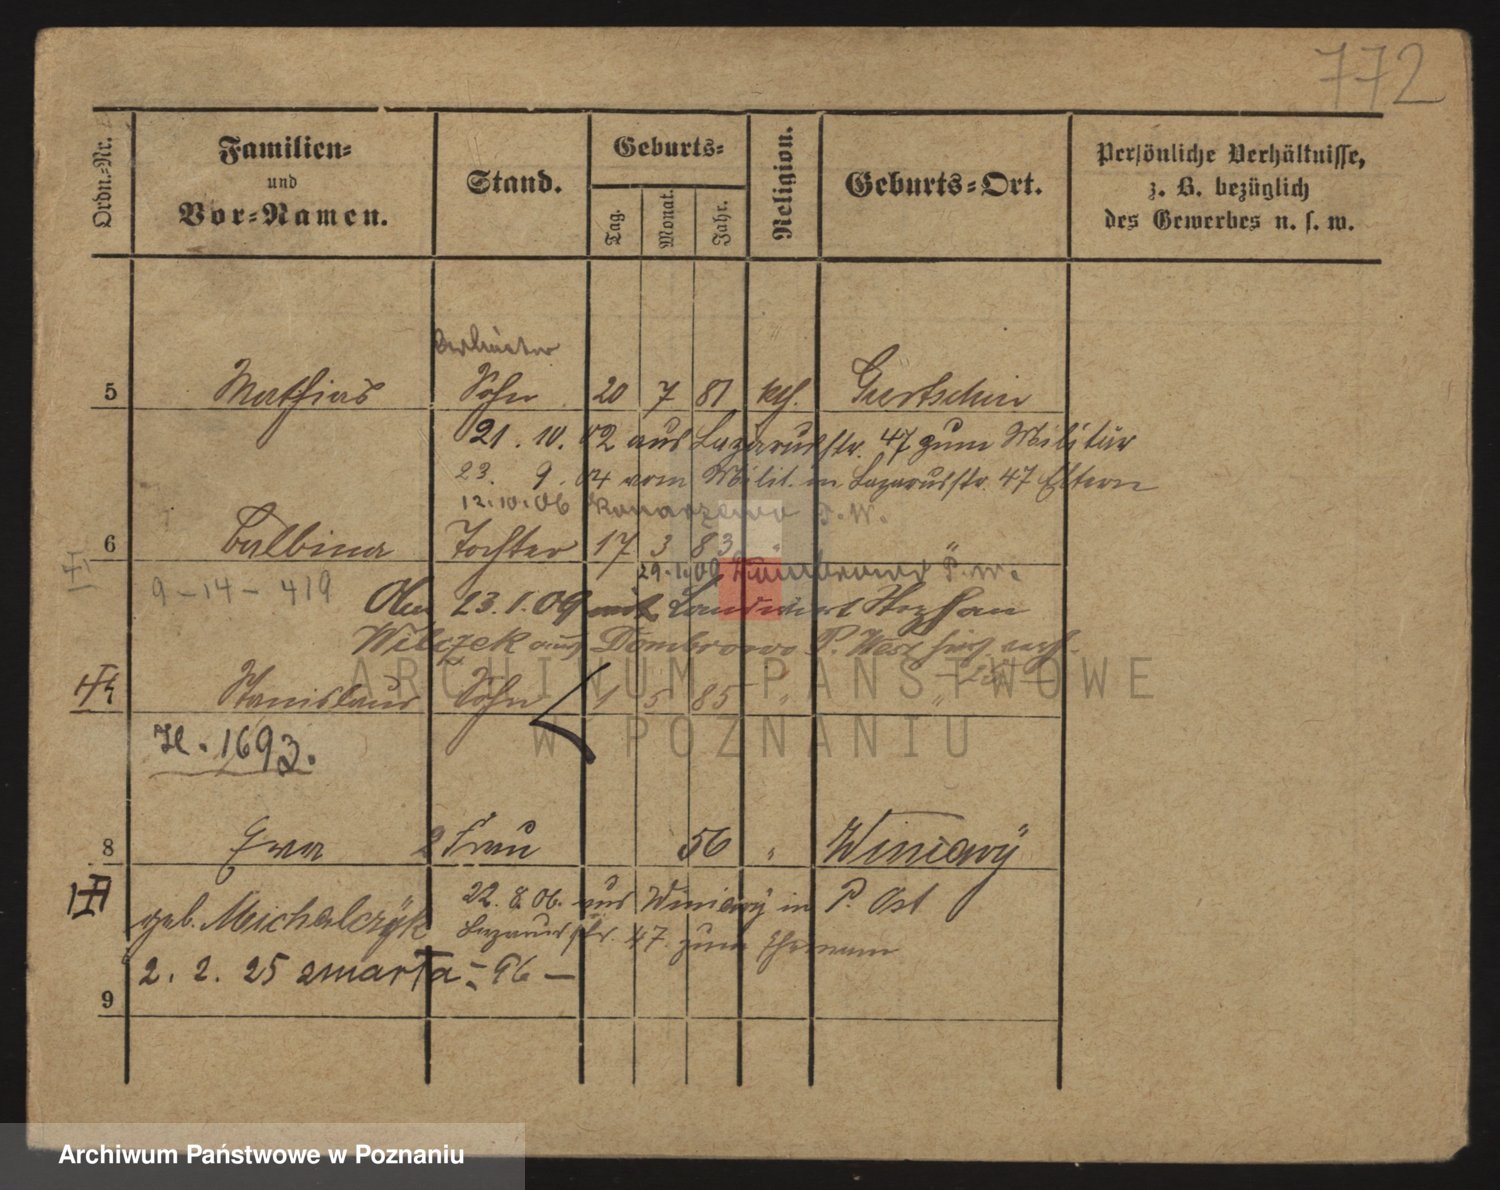 772
Ordn.-Nr.
Familien-
und
Vor-Namen.
Stand.
Geburts-
Tag.
Monat.
Jahr.
Religion.
Geburts-Ort.
Persönliche Verhältnisse,
z. B. bezüglich
des Gewerbes u. s. w.
5 Mathias Sohn 20 7 81 kth. Gurtschin
21. 10. 02 aus Lazarusstr. 47 zum Militär
23. 9. 04 vom Milit. in Lazarusstr. 47 Eltern
12.10.06 Konarzewo P. W.
6 Balbina Tochter 17 3 83 " "
29.1.09 Dombrowo P. W.
9-14-419
23.1.09 mit Landwirt Stephan
Wilczek aus Dombrowo P. West
Stanislaus Sohn 1 5 85 " "
ARCHIWUM PAŃSTWOWE
W POZNANIU
1693.
8 Ewa 2 Frau 56 " Winiary
geb. Michalczyk 22.8.06. aus Winiary in P. Ost
Lazarusstr. 47. zum Ehemann
2. 2. 25 zmarła - 96 -
9
Archiwum Państwowe w Poznaniu